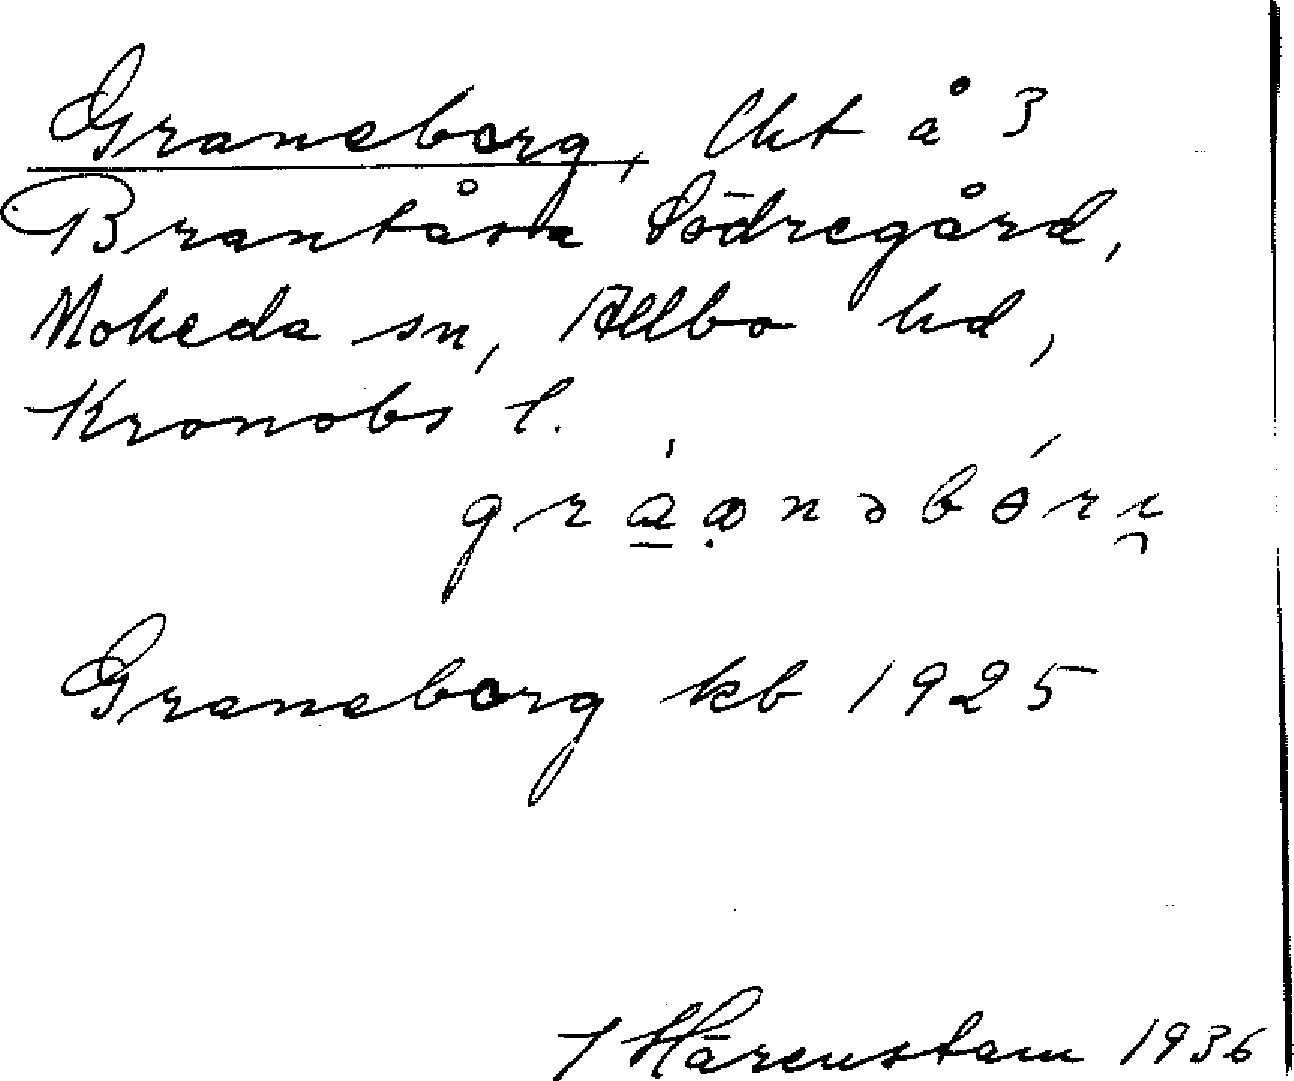 Graneborg, lht å 3
Brantåsa Södregård,
Moheda sn, Allbo hd,
Kronobs l.
Graneborg kb 1925
J Härenstam 1936